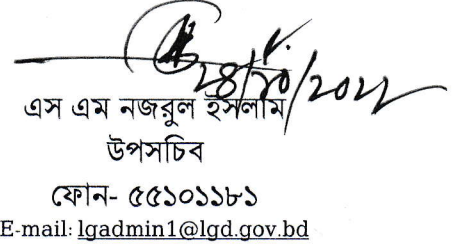 ২৪/১০/২০২২
এস এম নজরুল ইসলাম
উপসচিব
ফোন- ৫৫১০১১৮১
E-mail: lgadmin1@lgd.gov.bd